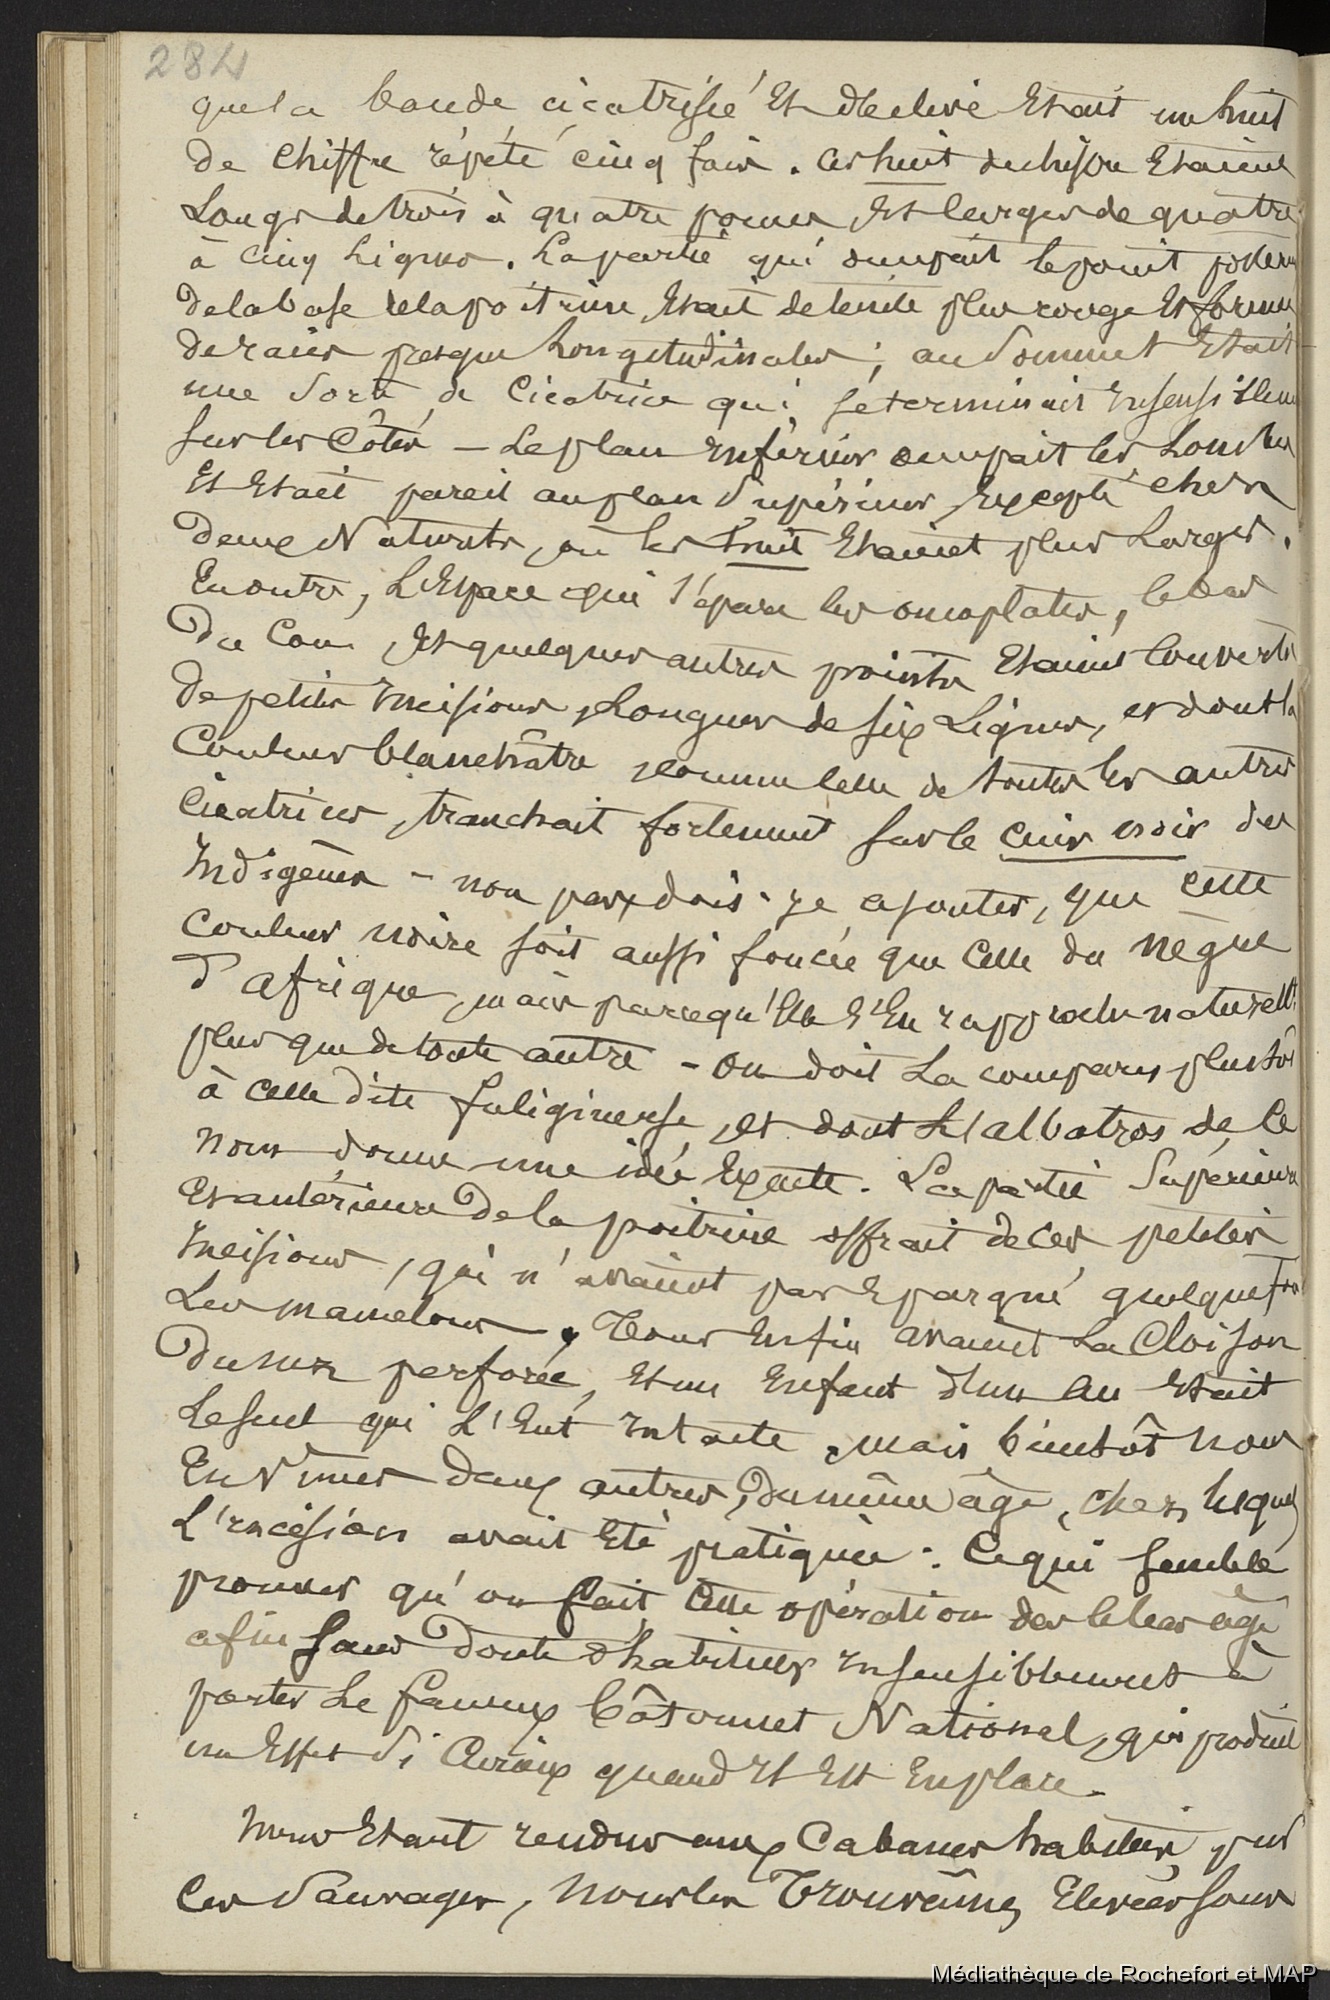 284
que la bande cicatrisée et élevée était un huit
de chiffre répété cinq fois. Ces huit de chiffre étaient
longs de trois à quatre pouces, et larges de quatre
à cinq lignes. La partie qui occupait le point
de la base de la poitrine, était de teinte plus rouge et formée
de raies presque longitudinales ; au sommet était
une sorte de cicatrice qui se terminait
sur les côtés – Le plan inférieur occupait les lombes
et était pareil au plan supérieur, excepté chez
deux naturels, où les huit étaient plus larges.
En outre, l'espace qui sépare les omoplates, le bas
du cou, et quelques autres points étaient couverts
de petites incisions, longues de six lignes, et dont la
couleur blanchâtre, comme celle de toutes les autres
cicatrices, tranchait fortement sur le cuir noir des
indigènes – non pas, dois-je ajouter, que cette
couleur noire soit aussi foncée que celle du nègre
d'afrique, mais parcequ'elle s'en rapproche naturellt
plus que de toute autre – on doit la comparer plustôt
à celle dite fuligineuse, et dont l'albatros de ce
nom donne une idée exacte. La partie supérieure
et antérieure de la poitrine offrait de ces petites
incisions, qui n'avaient pas épargné quelquefois
les mamelons. Tous enfin avaient la cloison
du nez perforée, et un enfant d'un an était
le seul qui l'eut intacte, mais bientôt nous
en vimes deux autres, du même âge, chez lesquels
l'incision avait été pratiquée : ce qui semble
prouver qu'on fait cette opération dès le bas âge
afin sans doute d'habituer insensiblement à
porter le fameux bâtonnet national, qui produit
un effet si curieux quand il est en place.
Nous étant rendus aux cabanes habitées par
ces sauvages, nous les trouvâmes élevées sous
Médiathèque de Rochefort et MAP